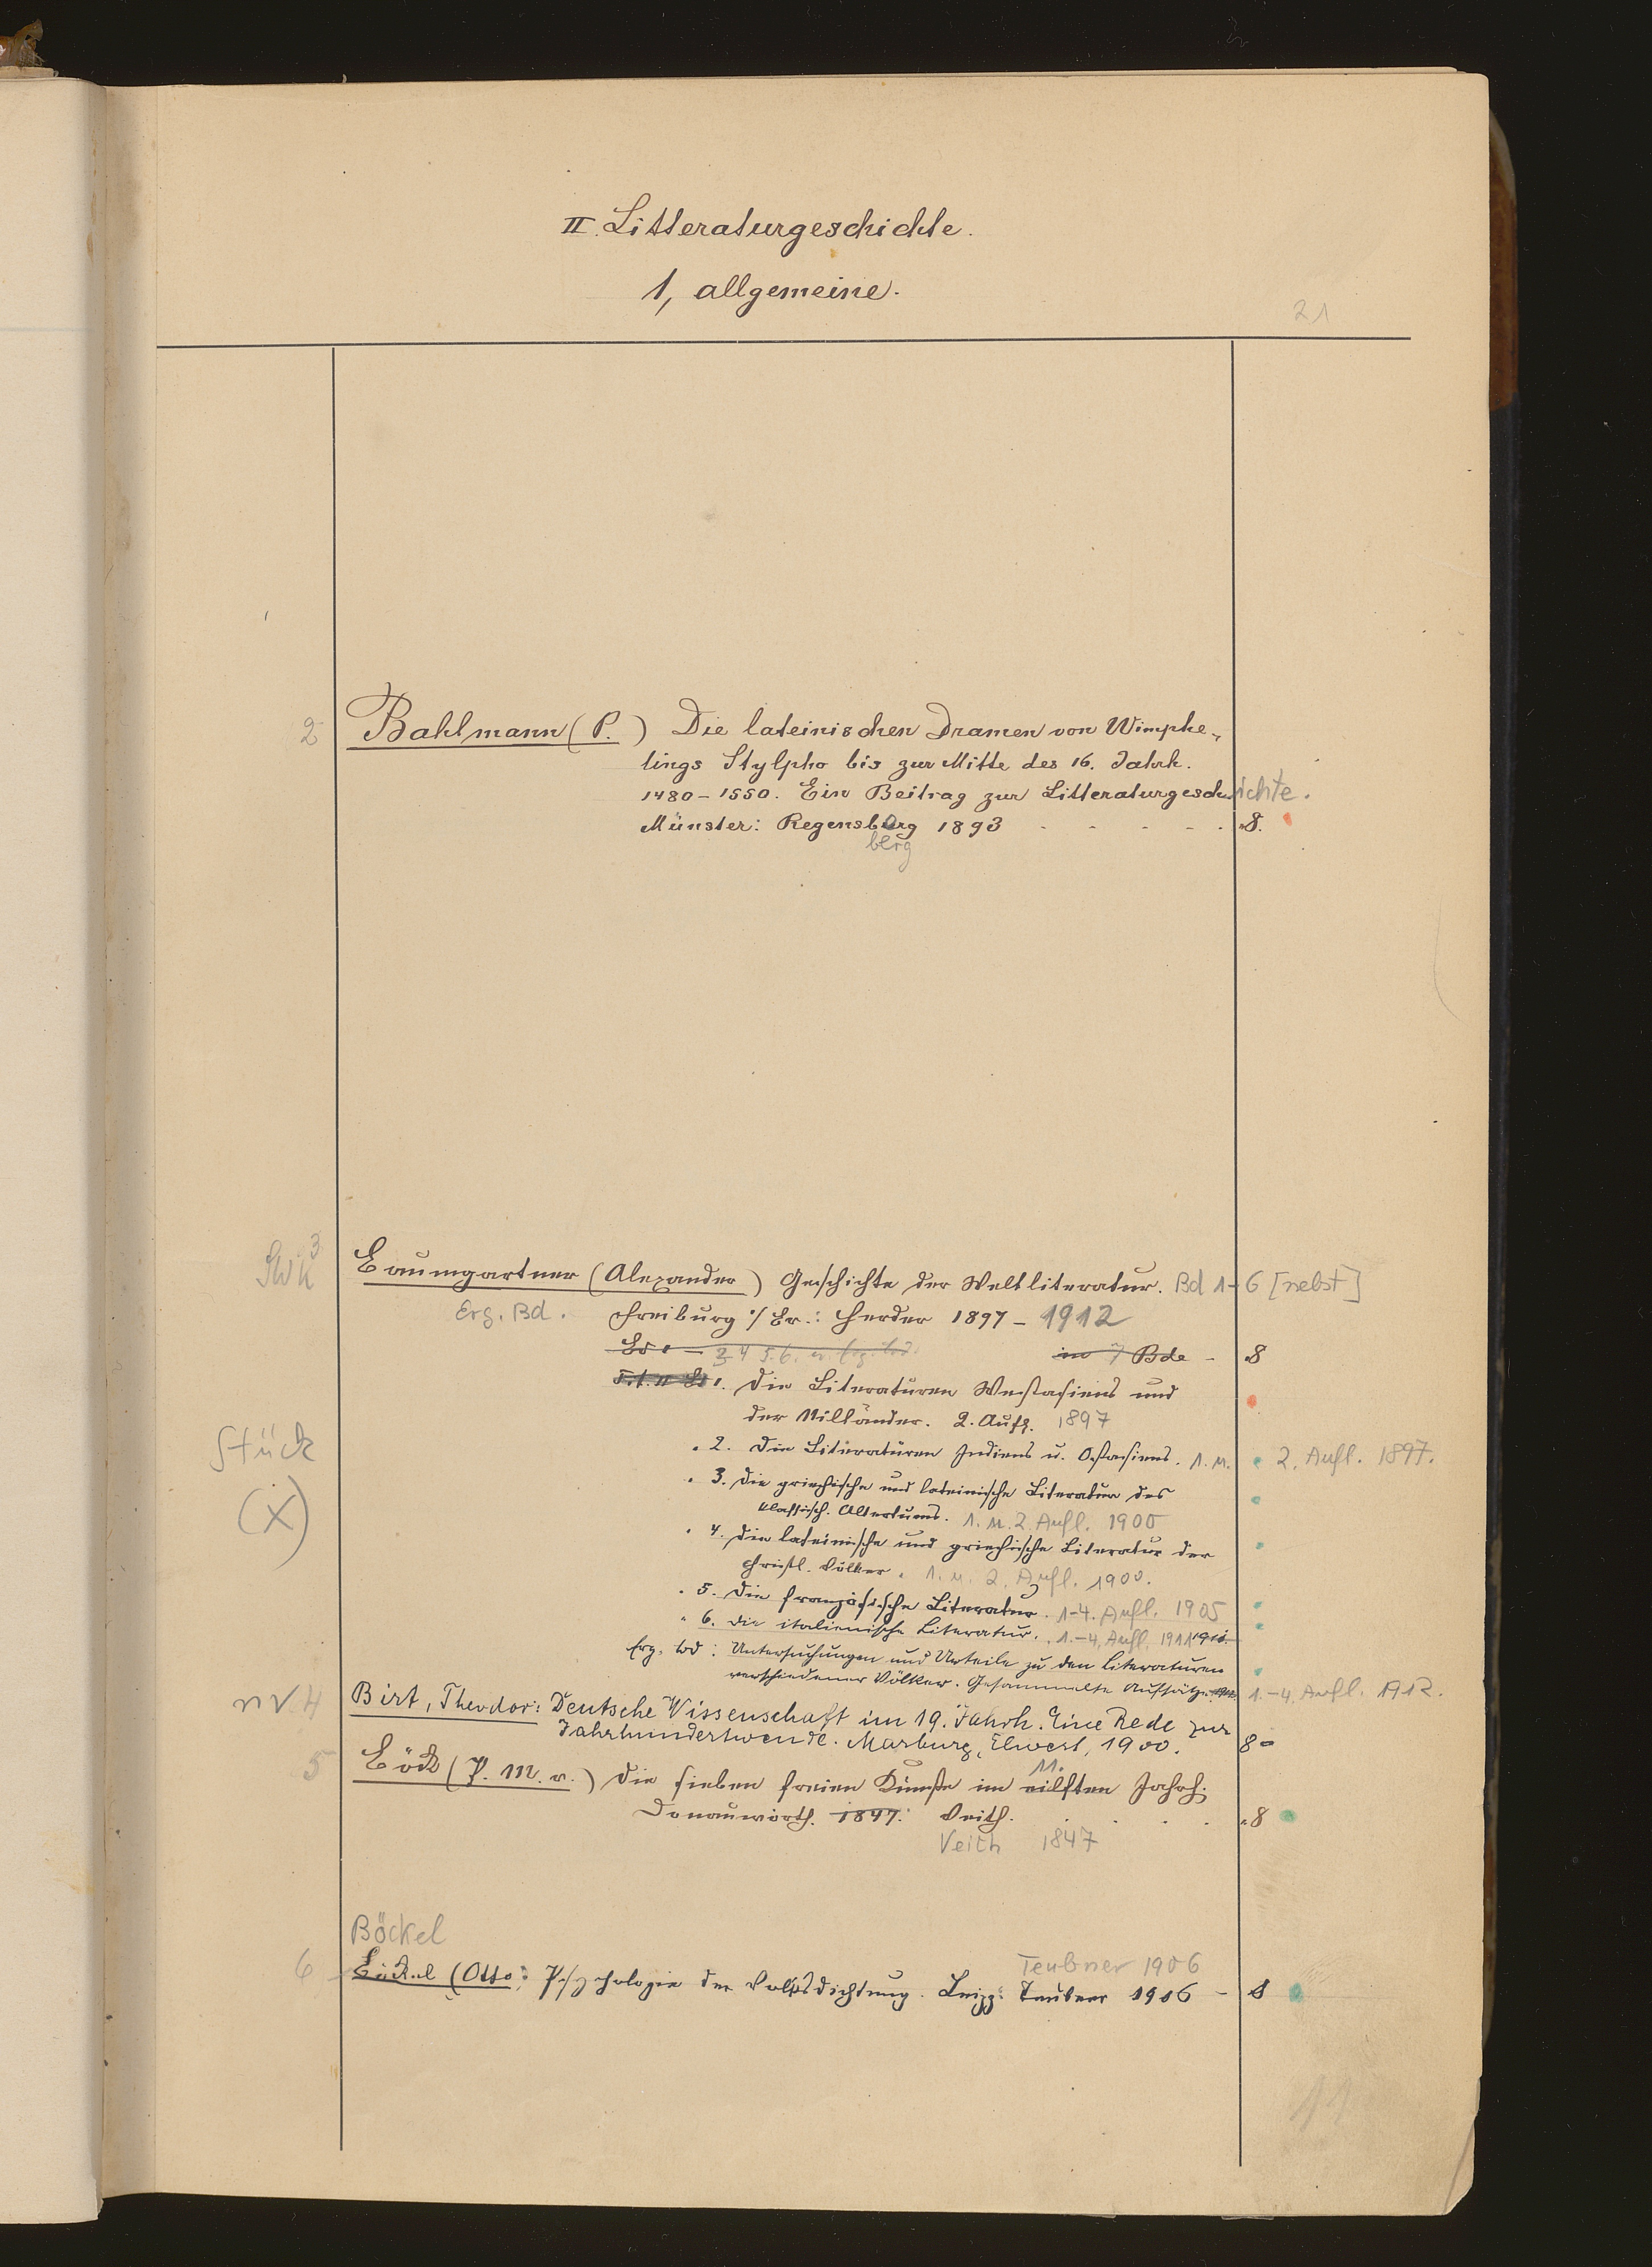 II. Litteraturgeschichte.
1, allgemeine.
21
2 Bahlmann (P.) Die lateinischen Dramen von Wimphe-
lings Stylpho bis zur Mitte des 16. Jahrh.
1480-1550. Ein Beitrag zur Litteraturgeschichte.
Münster: Regensburg 1893 - - - - - 8.
berg
3 Baumgartner (Alexander) Geschichte der Weltliteratur. Bd 1-6 [nebst]
Erg. Bd. Freiburg i/Br.: Herder 1897 - 1912
in 7 Bde - 8
1. Die Literaturen Westasiens und
der Nilländer. 2. Aufl. 1897
" 2. Die Literaturen Indiens u. Ostasiens. 1. u. 2. Aufl. 1897.
Stück
" 3. Die griechische und lateinische Literatur des
klassisch. Altertums. 1. u. 2. Aufl. 1900
(X)
" 4. Die lateinische und griechische Literatur der
christl. Völker. 1. u. 2. Aufl. 1900.
" 5. Die französische Literatur. 1-4. Aufl. 1905
" 6. Die italienische Literatur. 1.-4. Aufl. 1911
Erg. Bd: Untersuchungen und Urteile zu den Literaturen
verschiedener Völker. Gesammelte Aufsätze. 1.-4. Aufl. 1912.
n V. 4 Birt, Theodor: Deutsche Wissenschaft im 19. Jahrh. Eine Rede zur
Jahrhundertwende. Marburg, Elwert, 1900. 8°
11.
5 Böck (P. M. v.) Die sieben freien Künste im eilften Jahrh.
Donauwörth. 1847: Veith. . . . . 8
Veith 1847
Böckel
Teubner 1906
6 Böckel (Otto: Psychologie der Volksdichtung. Leipz: Teubner 1906 - 8
11